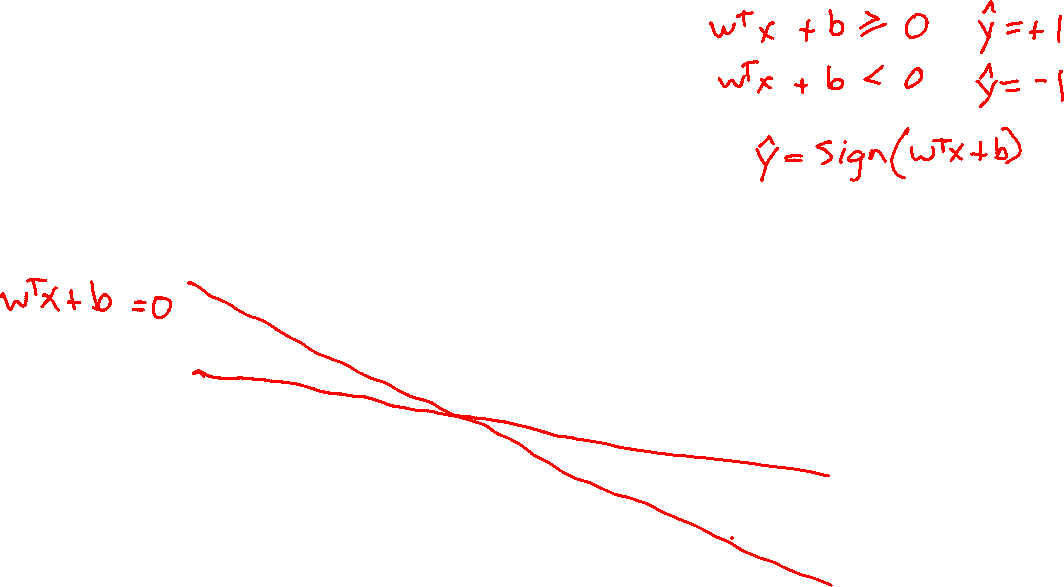 wᵀx + b ⩾ 0 ŷ = +1
wᵀx + b < 0 ŷ = -1
ŷ = sign(wᵀx+b)
wᵀx + b = 0